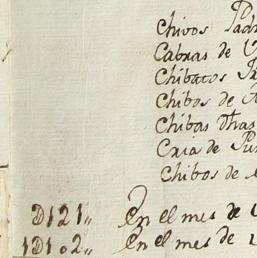 Chivos Padr
Cabras de V
Chibatos
Chibos de
Chibas Otras
Cria de
Chibos de
D121,, En el mes de
1D102,, En el mes de